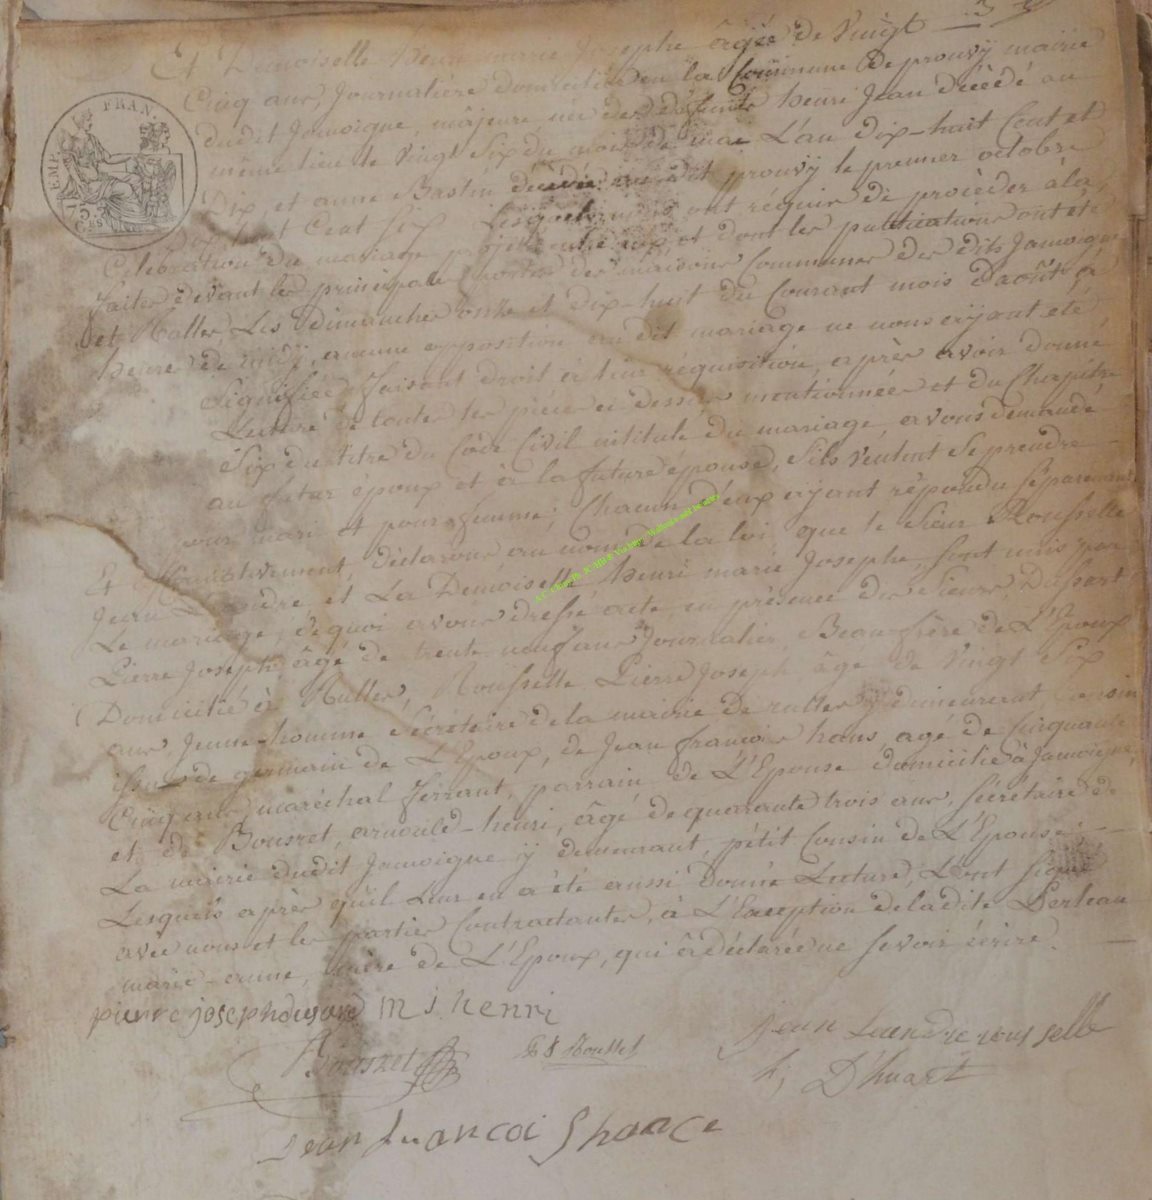 Et Demoiselle Henri marie Josephe âgée de Vingt
Cinq ans, Journalière domiciliée en la Commune de prouvÿ mairie
dudit Jamoigne, majeure née des défunts henri Jean décédé au
même lieu le Vingt Six du mois de mai L'an dix-huit Cent et
Dix, et anne Bastin décédée audit prouvÿ le premier octobre
dix huit Cent Six Lesquels nous ont réquis de procèder à la
Célébration du mariage projetté entre eux, et dont les publications ont été
faites devant les principales portes des maisons Communes des dits Jamoigne
et Rulles, Les Dimanches onze et dix-huit du Courant mois d'août, à
heure de midÿ, aucune opposition au dit mariage ne nous aÿant été
Signifiée, faisant droit à leur réquisition, après avoir donné
Lecture de toutes les pièces ci dessus mentionnées et du Chapitre
Six du titre du Côde Civil intitulé du mariage, avons demandé
au futur époux et à la future épouse, s'ils veulent Se prendre
pour mari et pour femme; Chacun d'eux aÿant répondu Séparement
Et affirmativement, déclarons au nom de la loi que le Sieur Rousselle
Jean Leandre, et La Demoiselle henri marie Josephe, Sont unis par
Le mariage, de quoi avons dressé acte, en présence des Sieurs,
Pierre Joseph âgé de trente neuf ans Journalier Beau frère de L'Epoux
Domicilié à Rulles, Rousselle Pierre Joseph âgé de Vingt Six
ans, Jeune homme Sécrétaire de la mairie de rulles ÿ demeurant, Cousin
issu de germain de L'Epoux, de Jean françois hans, agé de Cinquante
Cinq ans, maréchal ferrant, parrain de L'Epouse domicilié à Jamoigne,
et de Bousret, arnould-henri, âgé de quarante trois ans, Sécrétaire de
La mairie dudit Jamoigne ÿ demeurant, pétit Cousin de L'Epouse
Lesquels après qu'il leur en a été aussi Donné Lecture, L'ont Signé
avec nous et les parties Contractantes, à L'Exception de ladite
marie-anne, mère de L'Epoux, qui à déclarée ne Sevoir écrire.
pierre joseph M J henri
Jean Leandre rousselle
Bousret
Rousselle
D'huart
Jean francoi
EMP. FRAN.